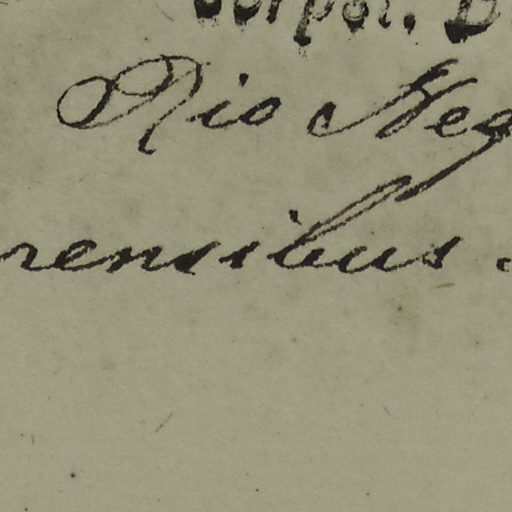 Rio Neg
rensibus.